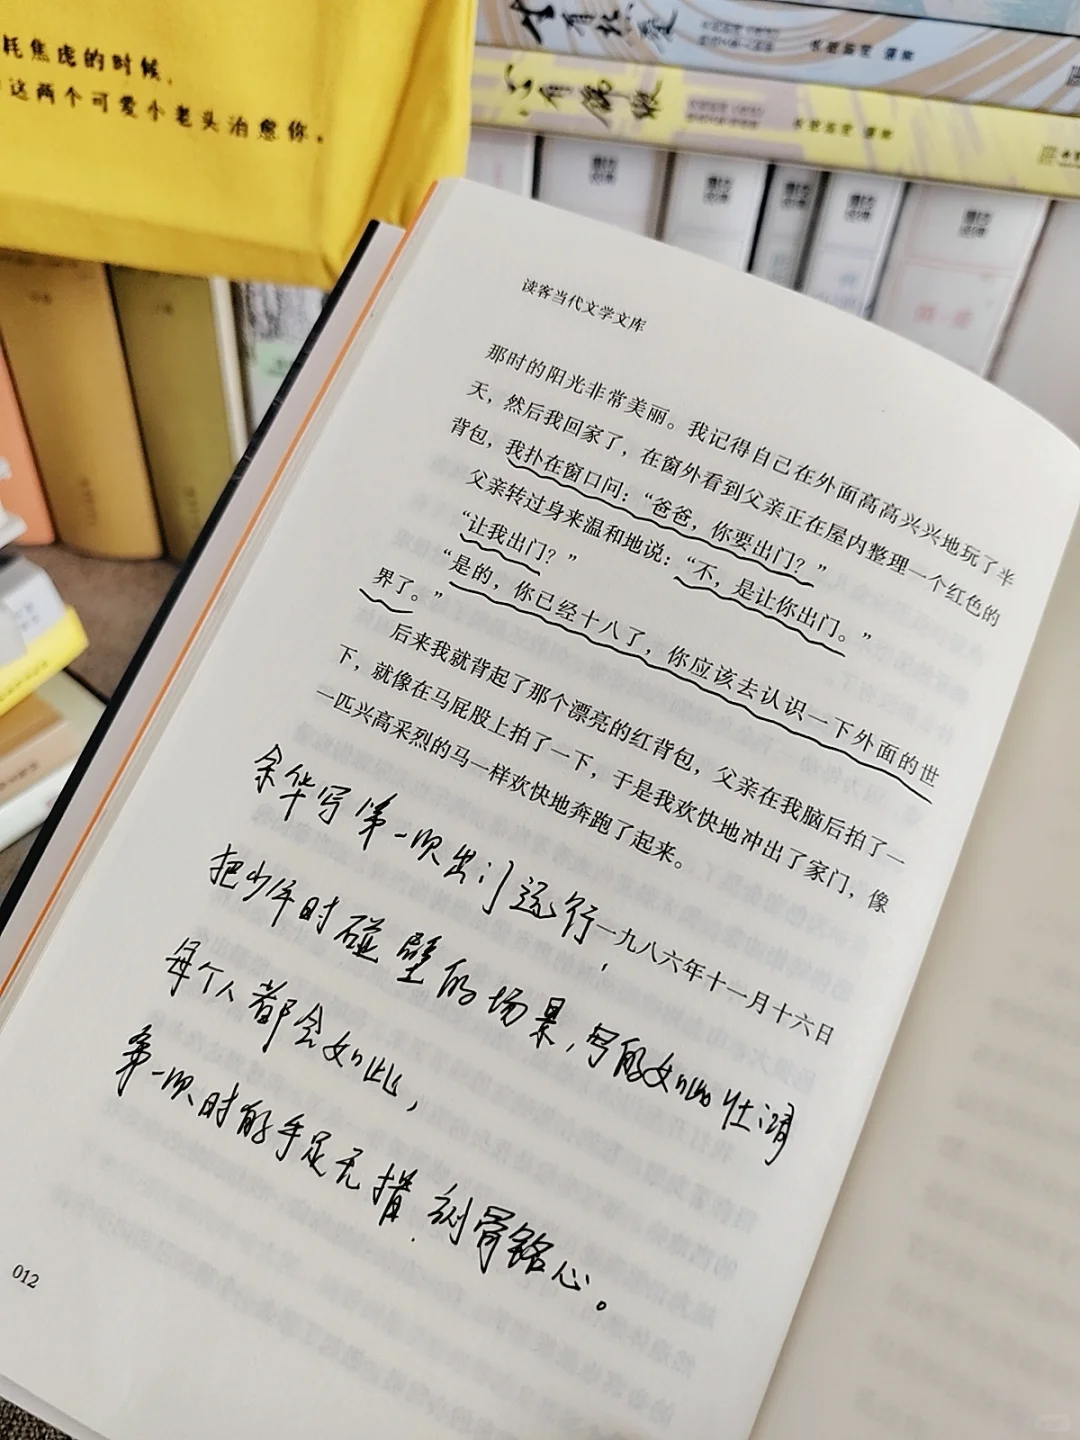 耗焦虑的时候，
这两个可爱小老头治愈你。
读客当代文学文库
那时的阳光非常美丽。我记得自己在外面高高兴兴地玩了半
天，然后我回家了，在窗外看到父亲正在屋内整理一个红色的
背包，我扑在窗口问：“爸爸，你要出门？”
父亲转过身来温和地说：“不，是让你出门。”
“让我出门？”
“是的，你已经十八了，你应该去认识一下外面的世
界了。”
后来我就背起了那个漂亮的红背包，父亲在我脑后拍了一
下，就像在马屁股上拍了一下，于是我欢快地冲出了家门，像
一匹兴高采烈的马一样欢快地奔跑了起来。
一九八六年十一月十六日
余华写第一次出门远行，
把少年时碰壁的场景，写的如此壮阔
每个人都会如此，
第一次时的手足无措.刻骨铭心。
012